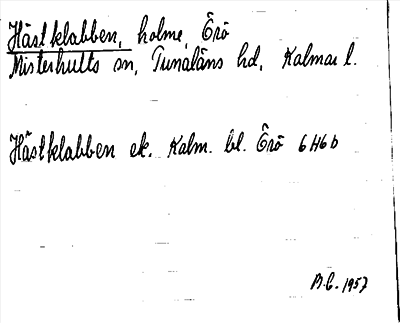 Hästklabben, holme, Örö
Misterhults sn, Tunaläns hd, Kalmar l.
Hästklabben ek. Kalm. bl. Örö 6 H 6 b
B.C. 1957